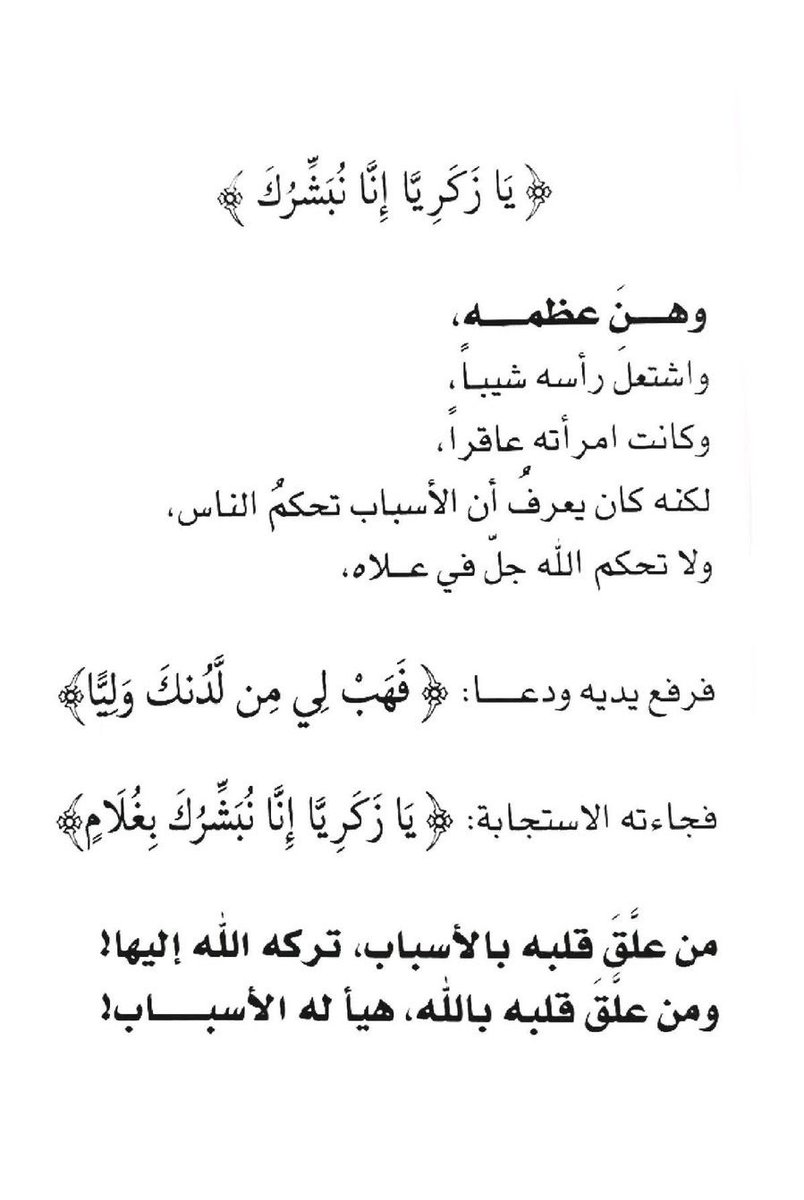 ﴿ يَا زَكَرِيَّا إِنَّا نُبَشِّرُكَ ﴾
وهـــنَ عظمـــه،
واشتعلَ رأسه شيبـاً،
وكانت امرأته عاقراً،
لكنه كان يعرفُ أن الأسباب تحكمُ الناس،
ولا تحكم الله جلّ في عـلاه.
فرفع يديه ودعـــا: ﴿ فَهَبْ لِي مِن لَّدُنكَ وَلِيًّا﴾
فجاءته الاستجابة: ﴿ يَا زَكَرِيَّا إِنَّا نُبَشِّرُكَ بِغُلَامٍ﴾
من علَّقَ قلبه بالأسباب، تركه الله إليها!
ومن علَّقَ قلبه بالله، هيأ له الأسبـــاب!